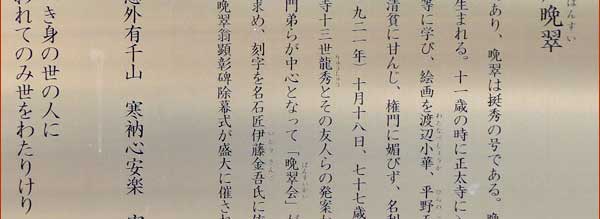 晩翠
ばんすい
あり、晩翠は挺秀の号である。晩
生まれる。十一歳の時に正太寺に
等に学び、絵画を渡辺小華、平野
わたなべしょうか
ひらの
清貧に甘んじ、権門に媚びず、名利
九二一年）十月十八日、七十七歳
寺十三世龍秀とその友人らの発案
りゅうしゅう
門弟らが中心となって「晩翠会」
ばんすいかい
求め、刻字を名石匠伊藤金吾氏に依
いとうきんご
晩翠翁顕彰碑除幕式が盛大に催され
意外有千山　寒衲心安楽
き身の世の人に
われてのみ世をわたりけり